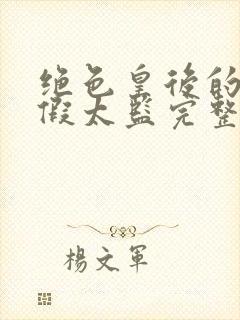 绝色皇後的
假太监完整
楊文軍